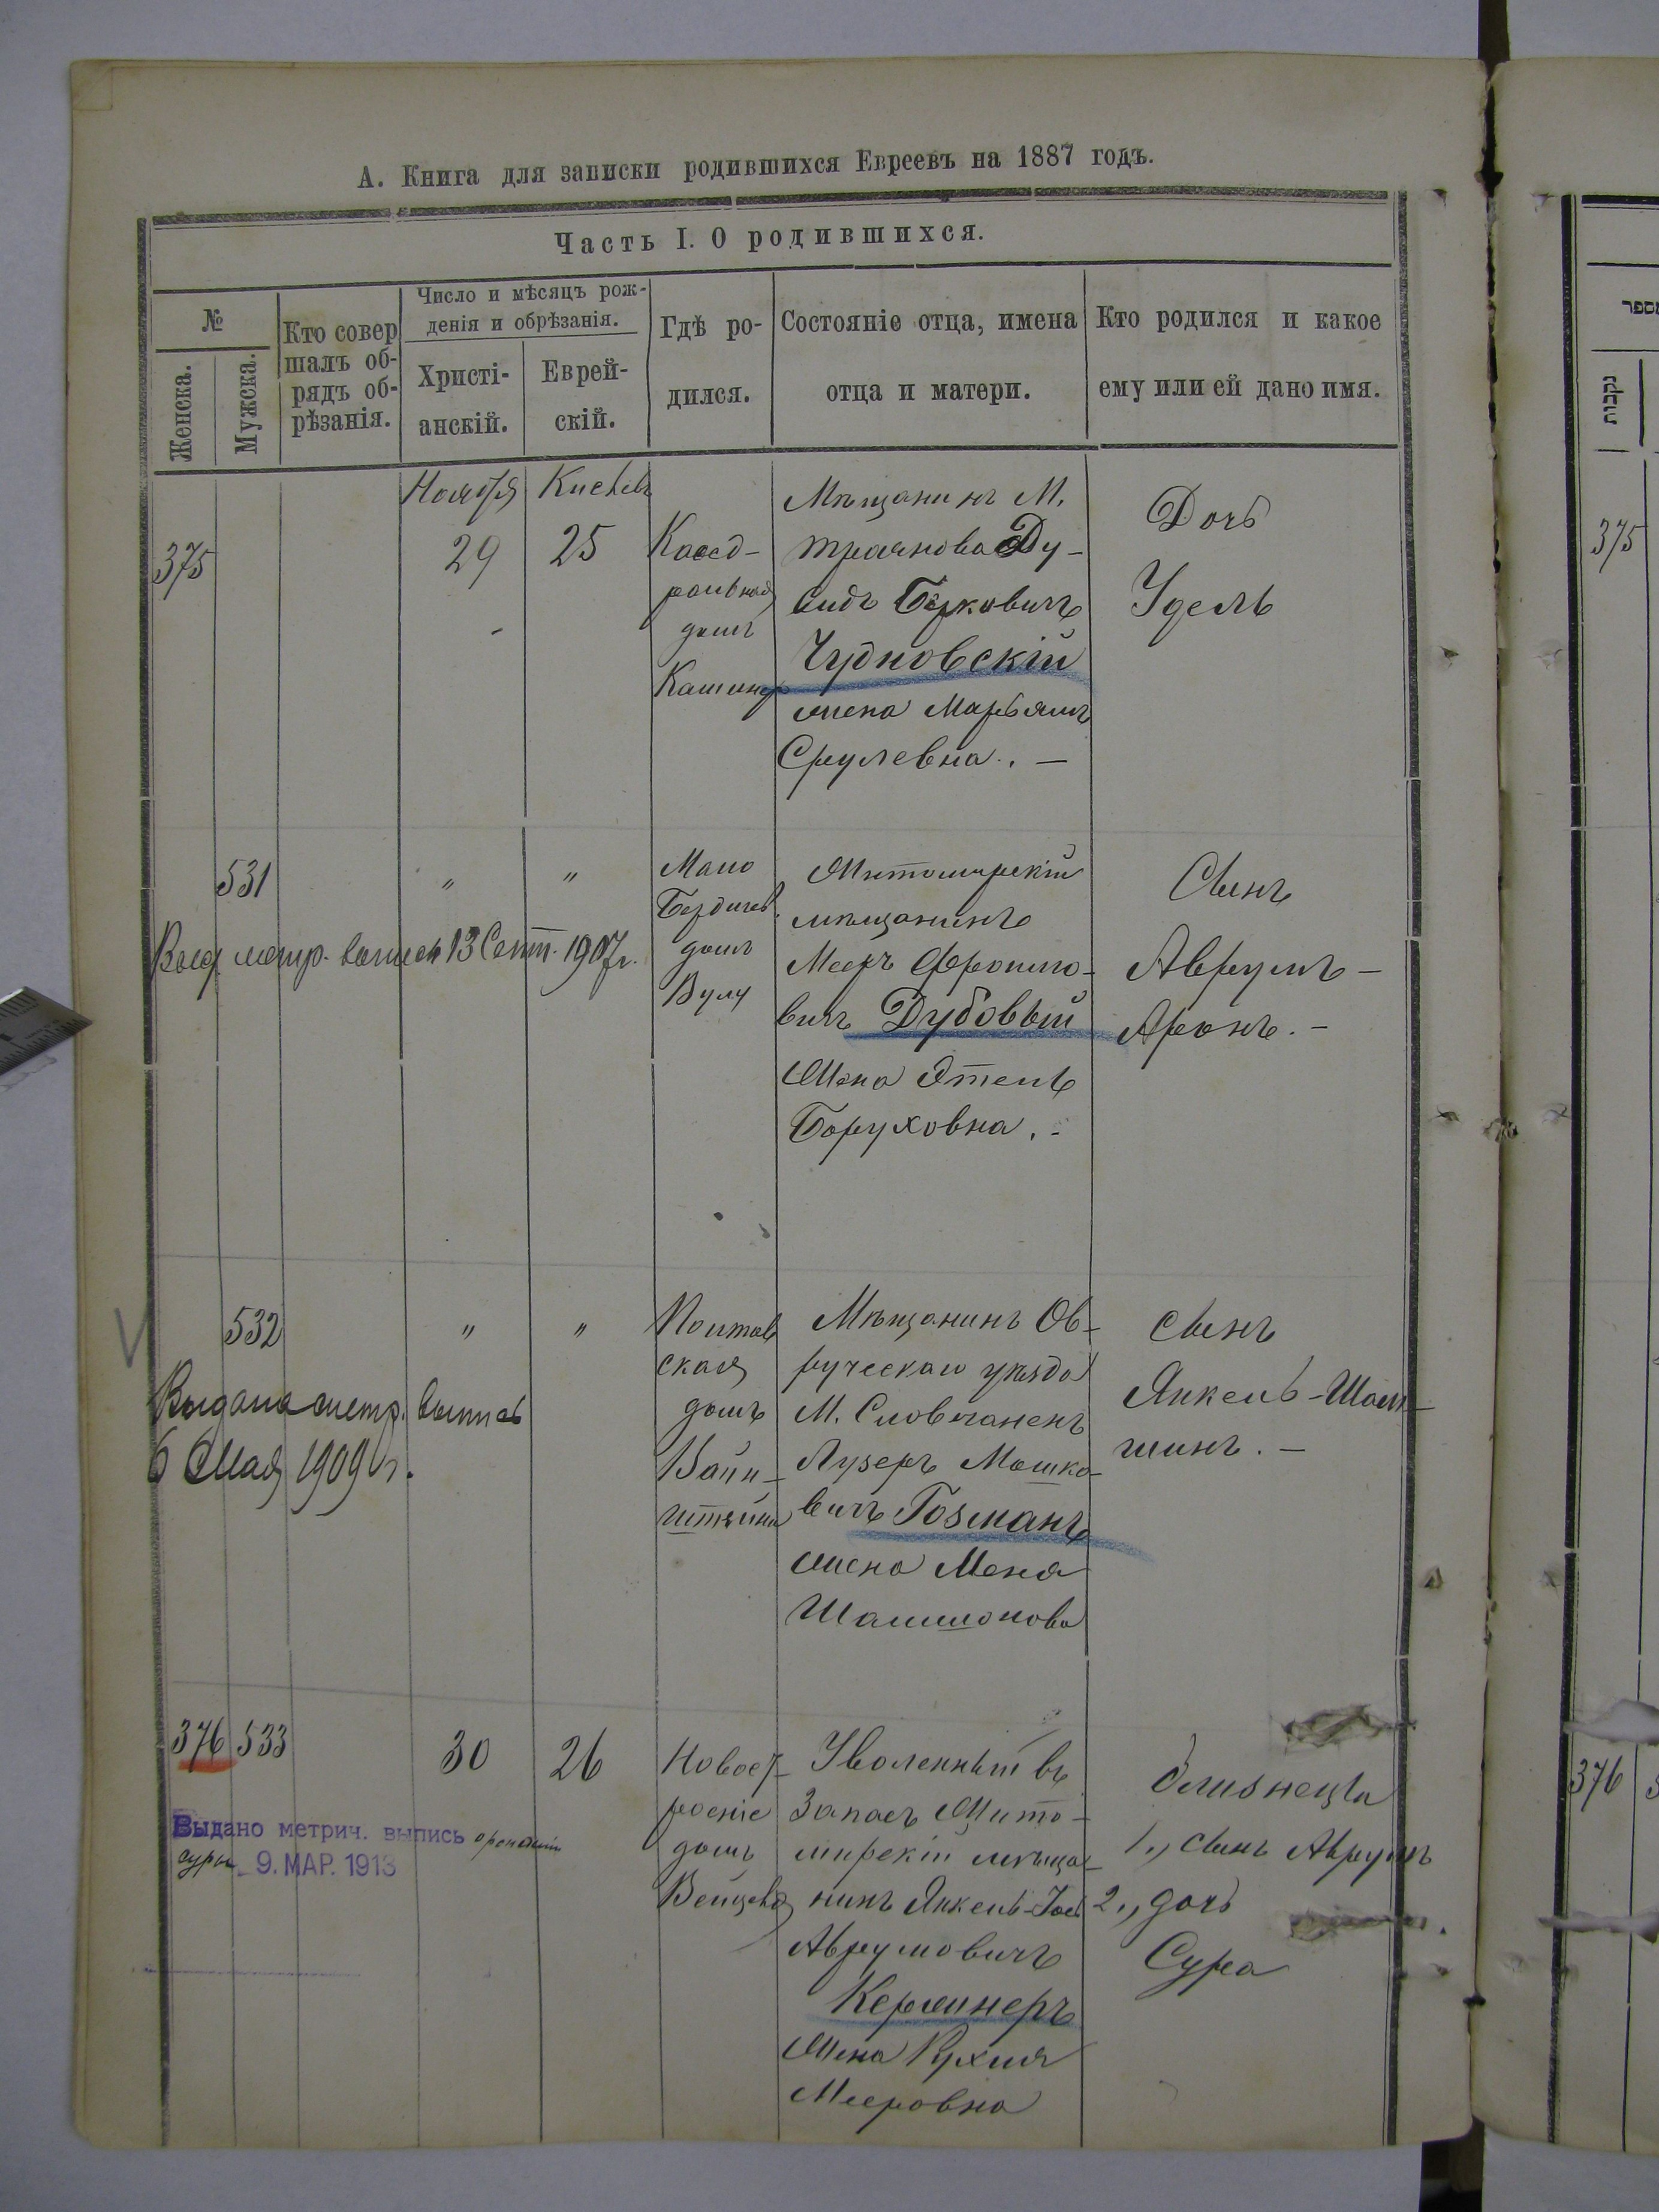 А. Книга для записки родившихся Евреевъ на 1887 годъ.
Часть I. О родившихся.
№
Женска.
Мужска.
Кто совер
шалъ об-
рядъ об-
рѣзанія.
Число и мѣсяцъ рож-
денія и обрѣзанія.
Христі-
анскій.
Еврей-
скій.
Гдѣ ро-
дился.
Состояніе отца, имена
отца и матери.
Кто родился и какое
ему или ей дано имя.
375
Ноября
29
Кислев
25
Каѳед-
ральная
домъ
Мѣщанинъ М.
Траянова Ду-
видъ Берковичъ
Чудновскій
жена Марьямъ
Срулевна. —
Дочь
Удель
531
"
"
Мало
Бердичев.
домъ
Вулу
Житомирскій
мѣщанинъ
Мееръ Фроимо-
вичъ Дубовый
Жена Этель
Боруховна. -
Сынъ
Аврумъ —
Аронъ. —
Выд метр. выпись 13 Сент. 1907г.
532
"
"
Полтав
ская
домъ
Вайн-
штейна
Мѣщанинъ Ов-
ручскаго уѣзда
М. Словечанскъ
Лузеръ Мошко-
вичъ Гозманъ
жена Меня
Шамшонова
сынъ
Янкель-Шам-
шинъ. —
Выдана метр. выпись
6 Мая 1909 г.
376 533
30
26
Новост-
роеніе
домъ
Уволенный въ
Запасъ Жито-
мирскій мѣща-
нинъ Янкель-Іос
Аврумовичъ
Кержнеръ
Жена Рухля
Мееровна
близнецы
1., сынъ Аврумъ
2., дочь
Сура
Выдано метрич. выпись
суры 9. МАР. 1913
מספר
נקבות
375
376